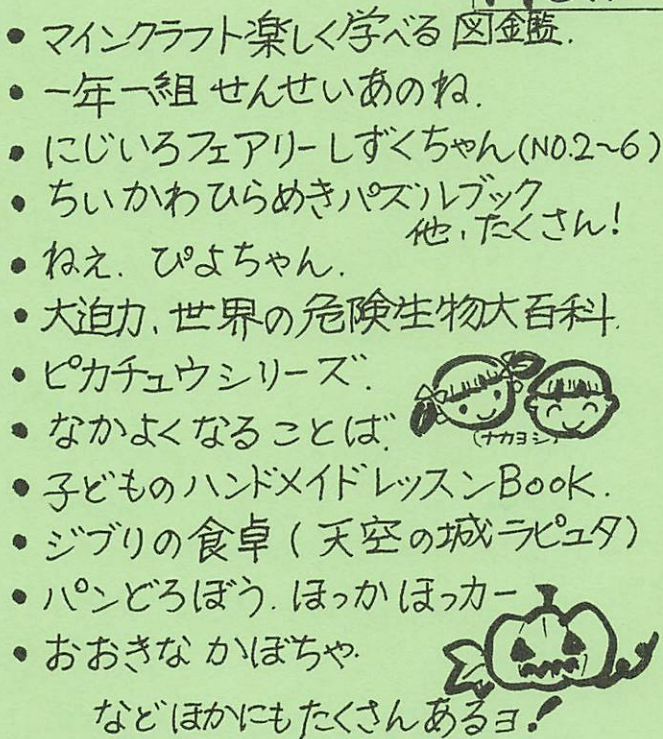 • マインクラフト楽しく学べる図鑑.
• 一年一組 せんせいあのね.
• にじいろフェアリーしずくちゃん(NO.2~6)
• ちいかわひらめきパズルブック
他、たくさん!
• ねえ. ぴよちゃん.
• 大迫力、世界の危険生物大百科.
• ピカチュウシリーズ.
• なかよくなることば.
(ナカヨシ)
• 子どものハンドメイドレッスンBook.
• ジブリの食卓(天空の城ラピュタ)
• パンどろぼう. ほっかほっカー
• おおきな かぼちゃ.
などほかにもたくさんあるヨ!